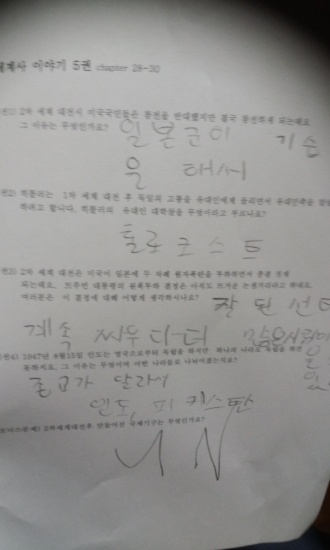 세계사 이야기 5권 chapter 28-30
2차 세계 대전시 미국국민들은 참전을 반대했지만 결국 참전하게 되는데요
그 이유는 무엇인가요? 일본군이 기습
을 해서
히틀러는 1차 세계 대전 후 독일의 고통을 유대인에게 돌리면서 유대민족을
하려고 합니다. 히틀러의 유대인 대학살을 무엇이라고 부르나요?
홀로코스트
2차 세계 대전은 미국이 일본에 두 차례 원자폭탄을 투하하면서 종결 짓게
되는데요. 트루먼 대통령의 원폭투하 결정은 아직도 뜨거운 논쟁거리라고 하네요.
여러분은 이 결정에 대해 어떻게 생각하시나요? 잘 된 선택
계속 싸우다
1947년 8월15일 인도는 영국으로부터 독립을 하지만 하나의 나라로 독립을 하진
못하지요. 그 이유는 무엇이며 어떤 나라들로 나뉘어졌는지요?
종교가 달라서
인도, 파키스탄
2차세계대전후 만들어진 국제기구는 무엇인가요?
UN